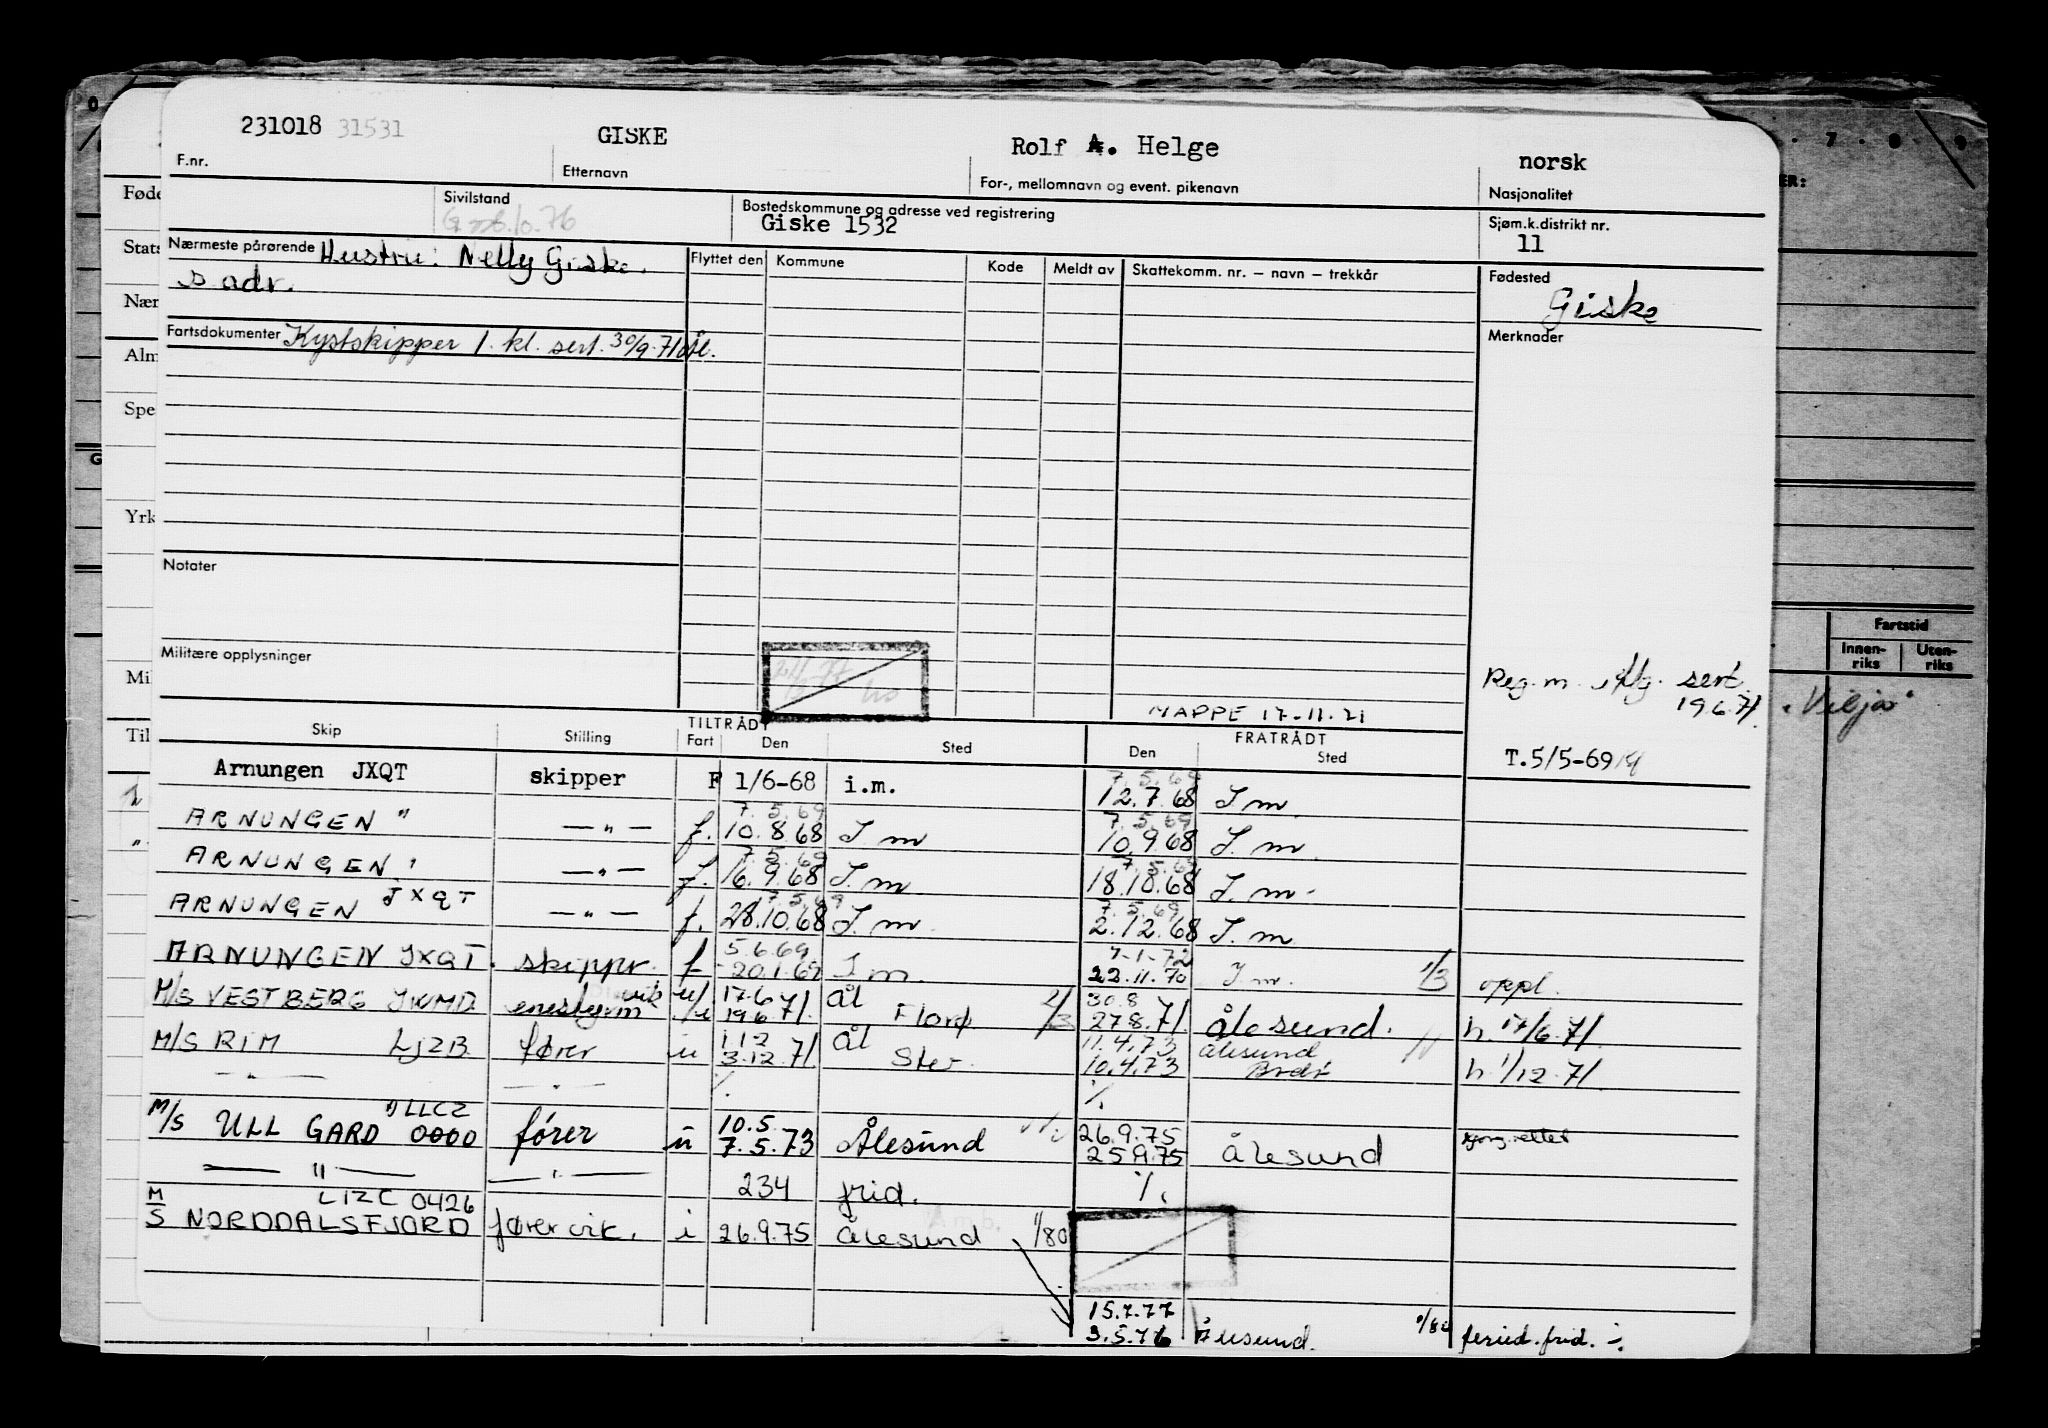 231018 31531 GISKE Rolf A. Helge norsk
F.nr. Etternavn For-, mellomnavn og event. pikenavn Nasjonalitet
Sivilstand Bostedskommune og adresse ved registrering Sjøm.k.distrikt nr.
Giske 1532 11
Nærmeste pårørende Hustru: Nelly Giske. Flyttet den Kommune Kode Meldt av Skattekomm. nr. – navn – trekkår Fødested
s. adr. Giske
Fartsdokumenter Kystskipper 1. kl. sert. 30/9-71 Ål. Merknader
Notater
Militære opplysninger
Reg. m. sert.
19 6 71.
MAPPE 17-11-71
TILTRÅDT FRATRÅDT
Skip Stilling Fart Den Sted Den Sted T.5/5-69
7.5.69
Arnungen JXQT skipper F 1/6-68 i.m. 12.7.68 I m.
7.5.69 7.5.69
ARNUNGEN " — " — f. 10.8.68 I m 10.9.68 I. m.
7.5.69 7.5.69
ARNUNGEN ' — " — f. 16.9.68 I. m 18.10.68 I. m.
7.5.69 7.5.69
ARNUNGEN JXQT — " — f. 28.10.68 I. m. 2.12.68 I. m
5.6.69 7-1-72
ARNUNGEN JXQT. skippr. f 20.1.69 I m. 22.11.70 I m. 1/3 oppl.
vik 17.6 Ål 30.8
M/S VESTBERG enestyrm 19.6.71. Florø 27.8.71. Ålesund. h. 17/6.71.
1 12 Ål 11.4.73 Ålesund
M/S RIM LJZB fører u 3.12.71. 10.4.73 h. 1/12.71.
— " — — " — %. %.
LLCZ 10.5. 26.9.75
M/S ULLGARD 0000 fører u 7.5.73 Ålesund 25.9.75 Ålesund
— " — — " — 234 frid. %.
LIZC 0426
M/S NORDDALSFJORD fører vik. i 26.9.75 Ålesund 1/80
15.7.77
3.5.76 Ålesund. feried. frid. ÷
Føde
Stats
Nær
Alm
Spe
G
Yrk
Mil
Til
7 8 9
ER:
Fartstid
Innen-riks Uten-riks
"Vilja"